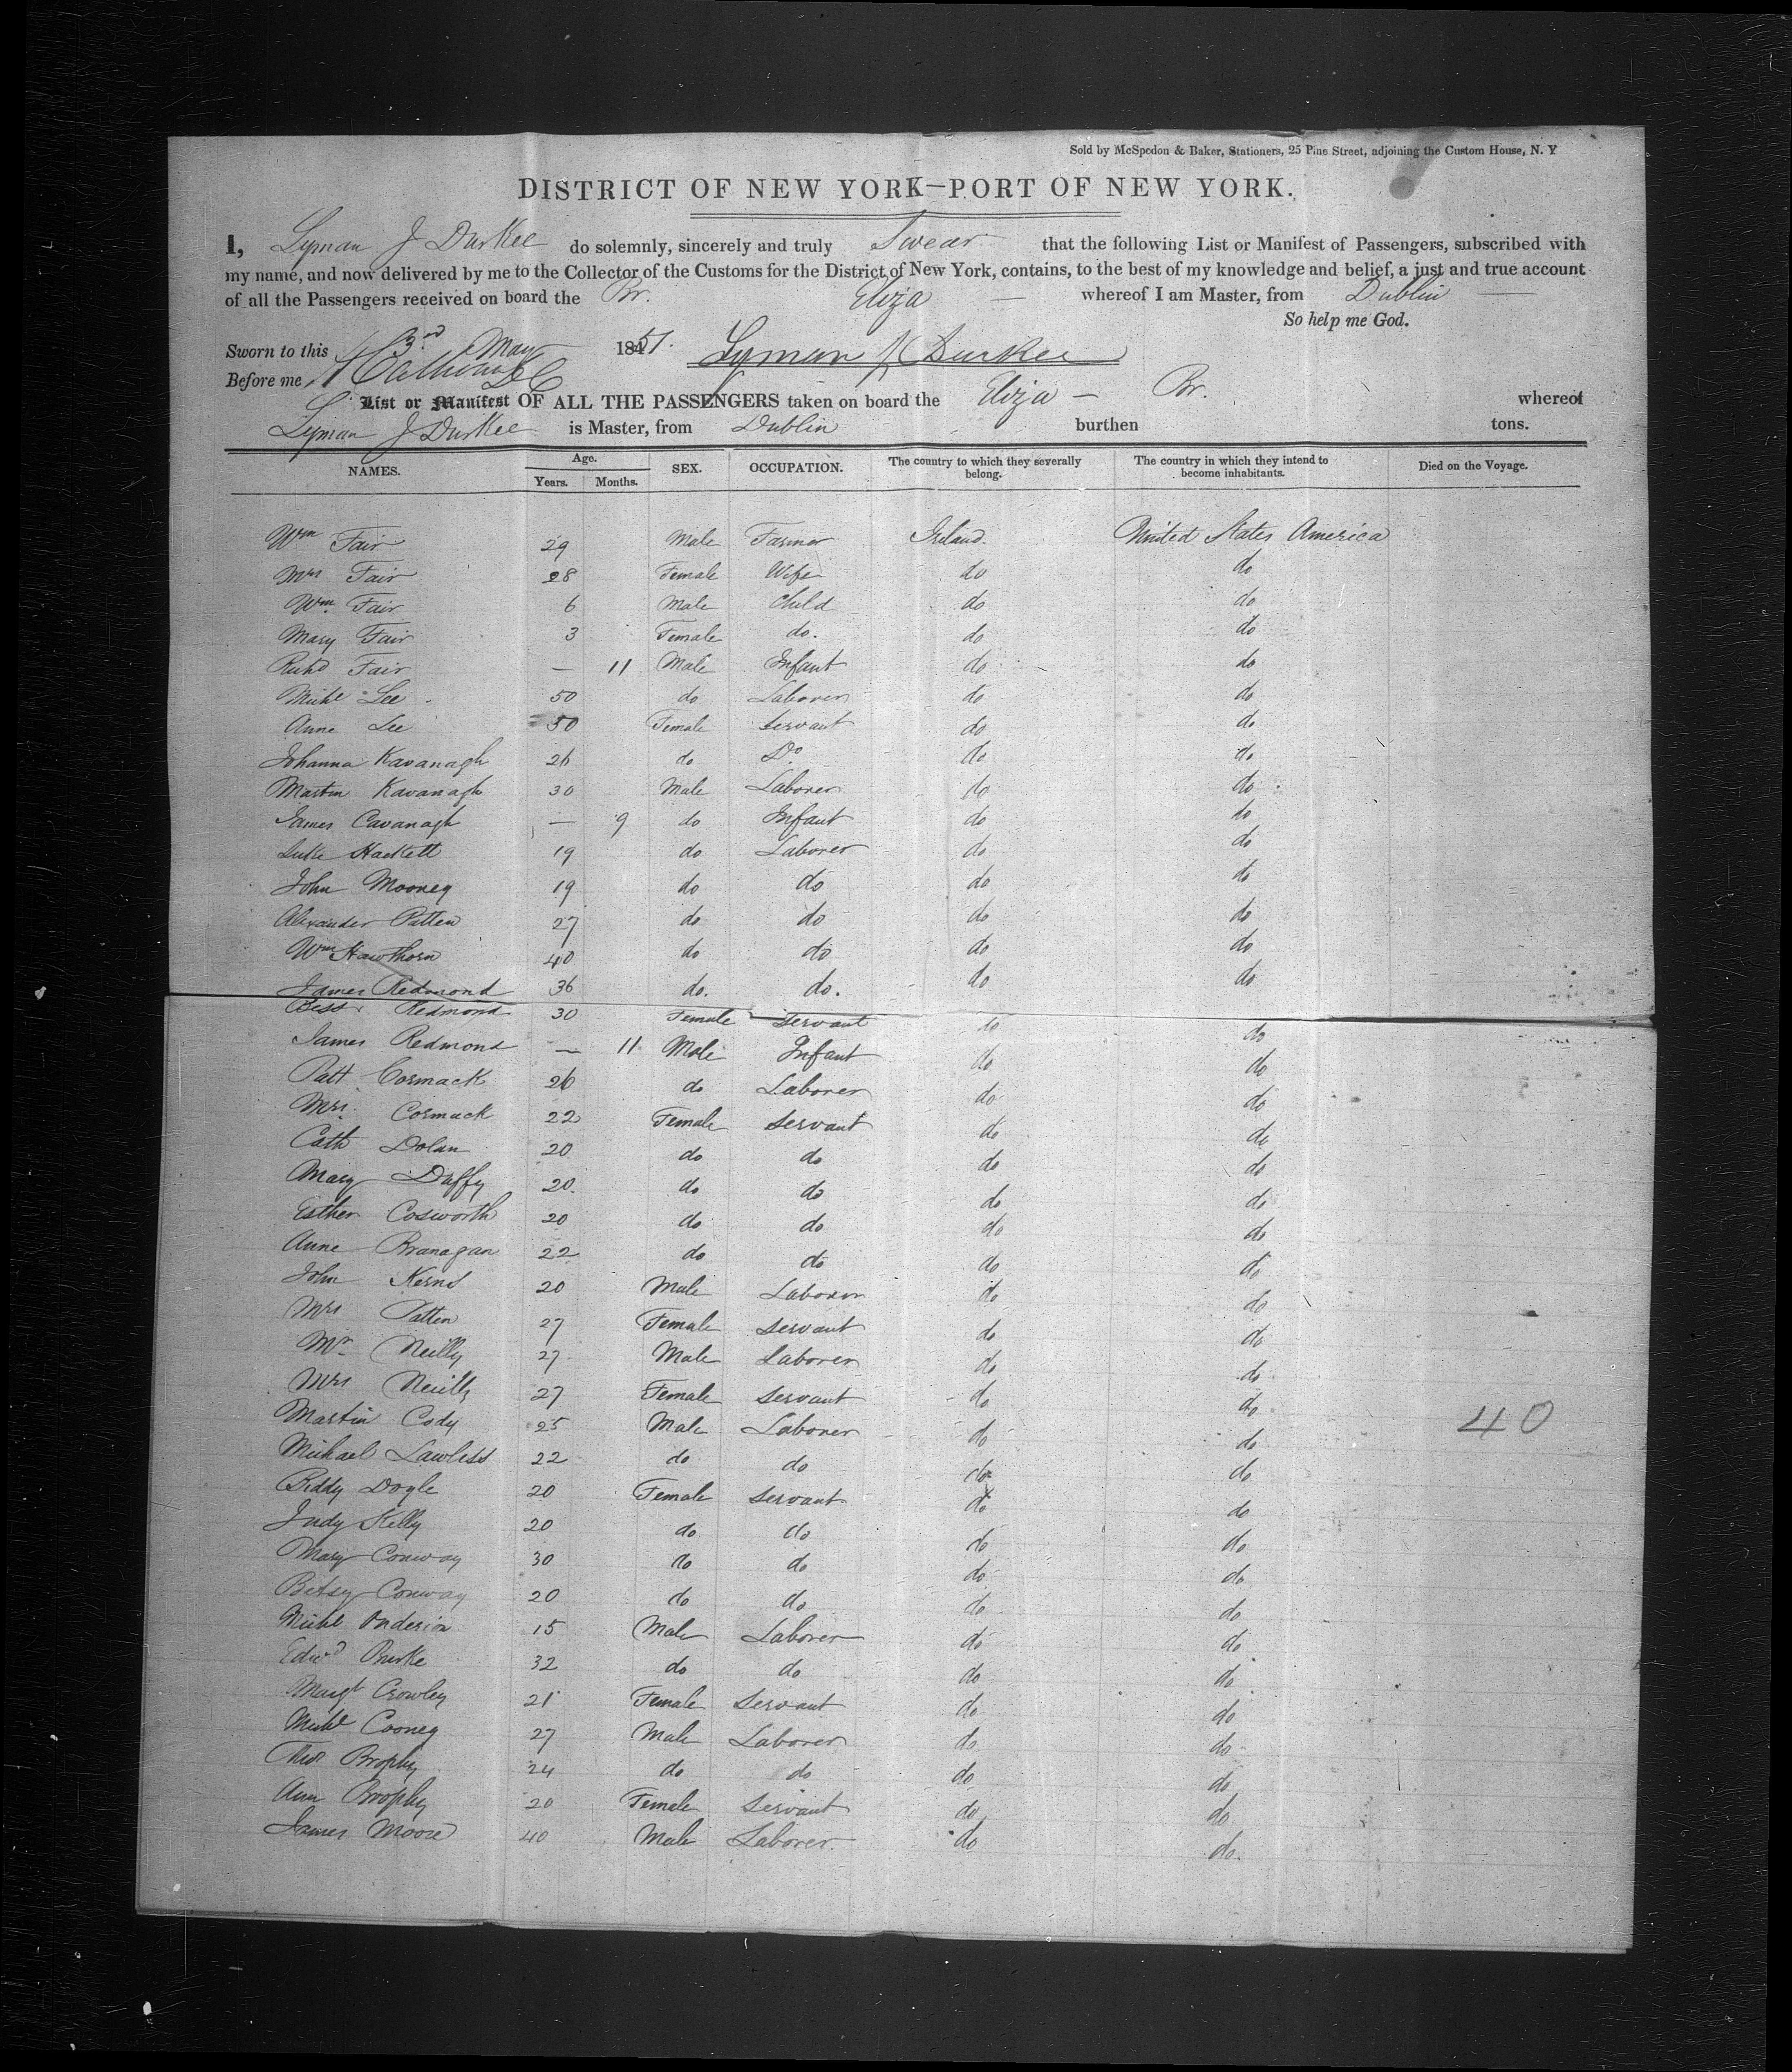 Sold by McSpedon & Baker, Stationers, 25 Pine Street, adjoining the Custom House, N. Y
DISTRICT OF NEW YORK—PORT OF NEW YORK.
I, Lyman J Durkee do solemnly, sincerely and truly Swear that the following List or Manifest of Passengers, subscribed with
my name, and now delivered by me to the Collector of the Customs for the District of New York, contains, to the best of my knowledge and belief, a just and true account
of all the Passengers received on board the Br. Eliza — whereof I am Master, from Dublin —
So help me God.
Sworn to this 3rd May 1851. Lyman J Durkee
Before me
List or Manifest OF ALL THE PASSENGERS taken on board the Eliza — Br. whereof
Lyman J Durkee is Master, from Dublin burthen tons.
NAMES. Age. Years. Months. SEX. OCCUPATION. The country to which they severally belong. The country in which they intend to become inhabitants. Died on the Voyage.
Wm Fair 29 Male Farmer Ireland. United States America
Mrs Fair 28 Female Wife do do
Wm. Fair 6 Male Child do do
Mary Fair 3 Female do. do do
Richd Fair — 11 Male Infant do do
Michl Lee 50 do Laborer do do
Anne Lee 50 Female Servant do do
Johanna Kavanagh 26 do Do do do
Martin Kavanagh 30 Male Laborer do do
James Cavanagh — 9 do Infant do do
Luke Hackett 19 do Laborer do do
John Mooney 19 do do do do
Alexander Patten 27 do do do do
Wm Hawthorn 40 do do do do
James Redmond 36 do. do. do do
Bess Redmond 30 Female Servant do do
James Redmond — 11 Male Infant do do
Patt Cormack 26 do Laborer do do
Mrs. Cormack 22 Female Servant do do
Cath Dolan 20 do do do do
Mary Duffy 20. do do do do
Esther Cosworth 20 do do do do
Anne Branagan 22 do do do do
John Kerns 20 Male Laborer do do
Mrs Patten 27 Female Servant do do
Mr Neilly 27 Male Laborer do do
Mrs Neilly 27 Female Servant do do
Martin Cody 25 Male Laborer do do 40
Michael Lawless 22 do do do do
Biddy Doyle 20 Female Servant do do
Judy Kelly 20 do do do do
Mary Conway 30 do do do do
Betsy Conway 20 do do do do
Michl Anderson 15 Male Laborer do do
Edwd Burke 32 do do do do
Margt Crowley 21 Female Servant do do
Michl Cooney 27 Male Laborer do do
Thos Brophy 24 do do do do
Ann Brophy 20 Female Servant do do
James Moore 40 Male Laborer do do.